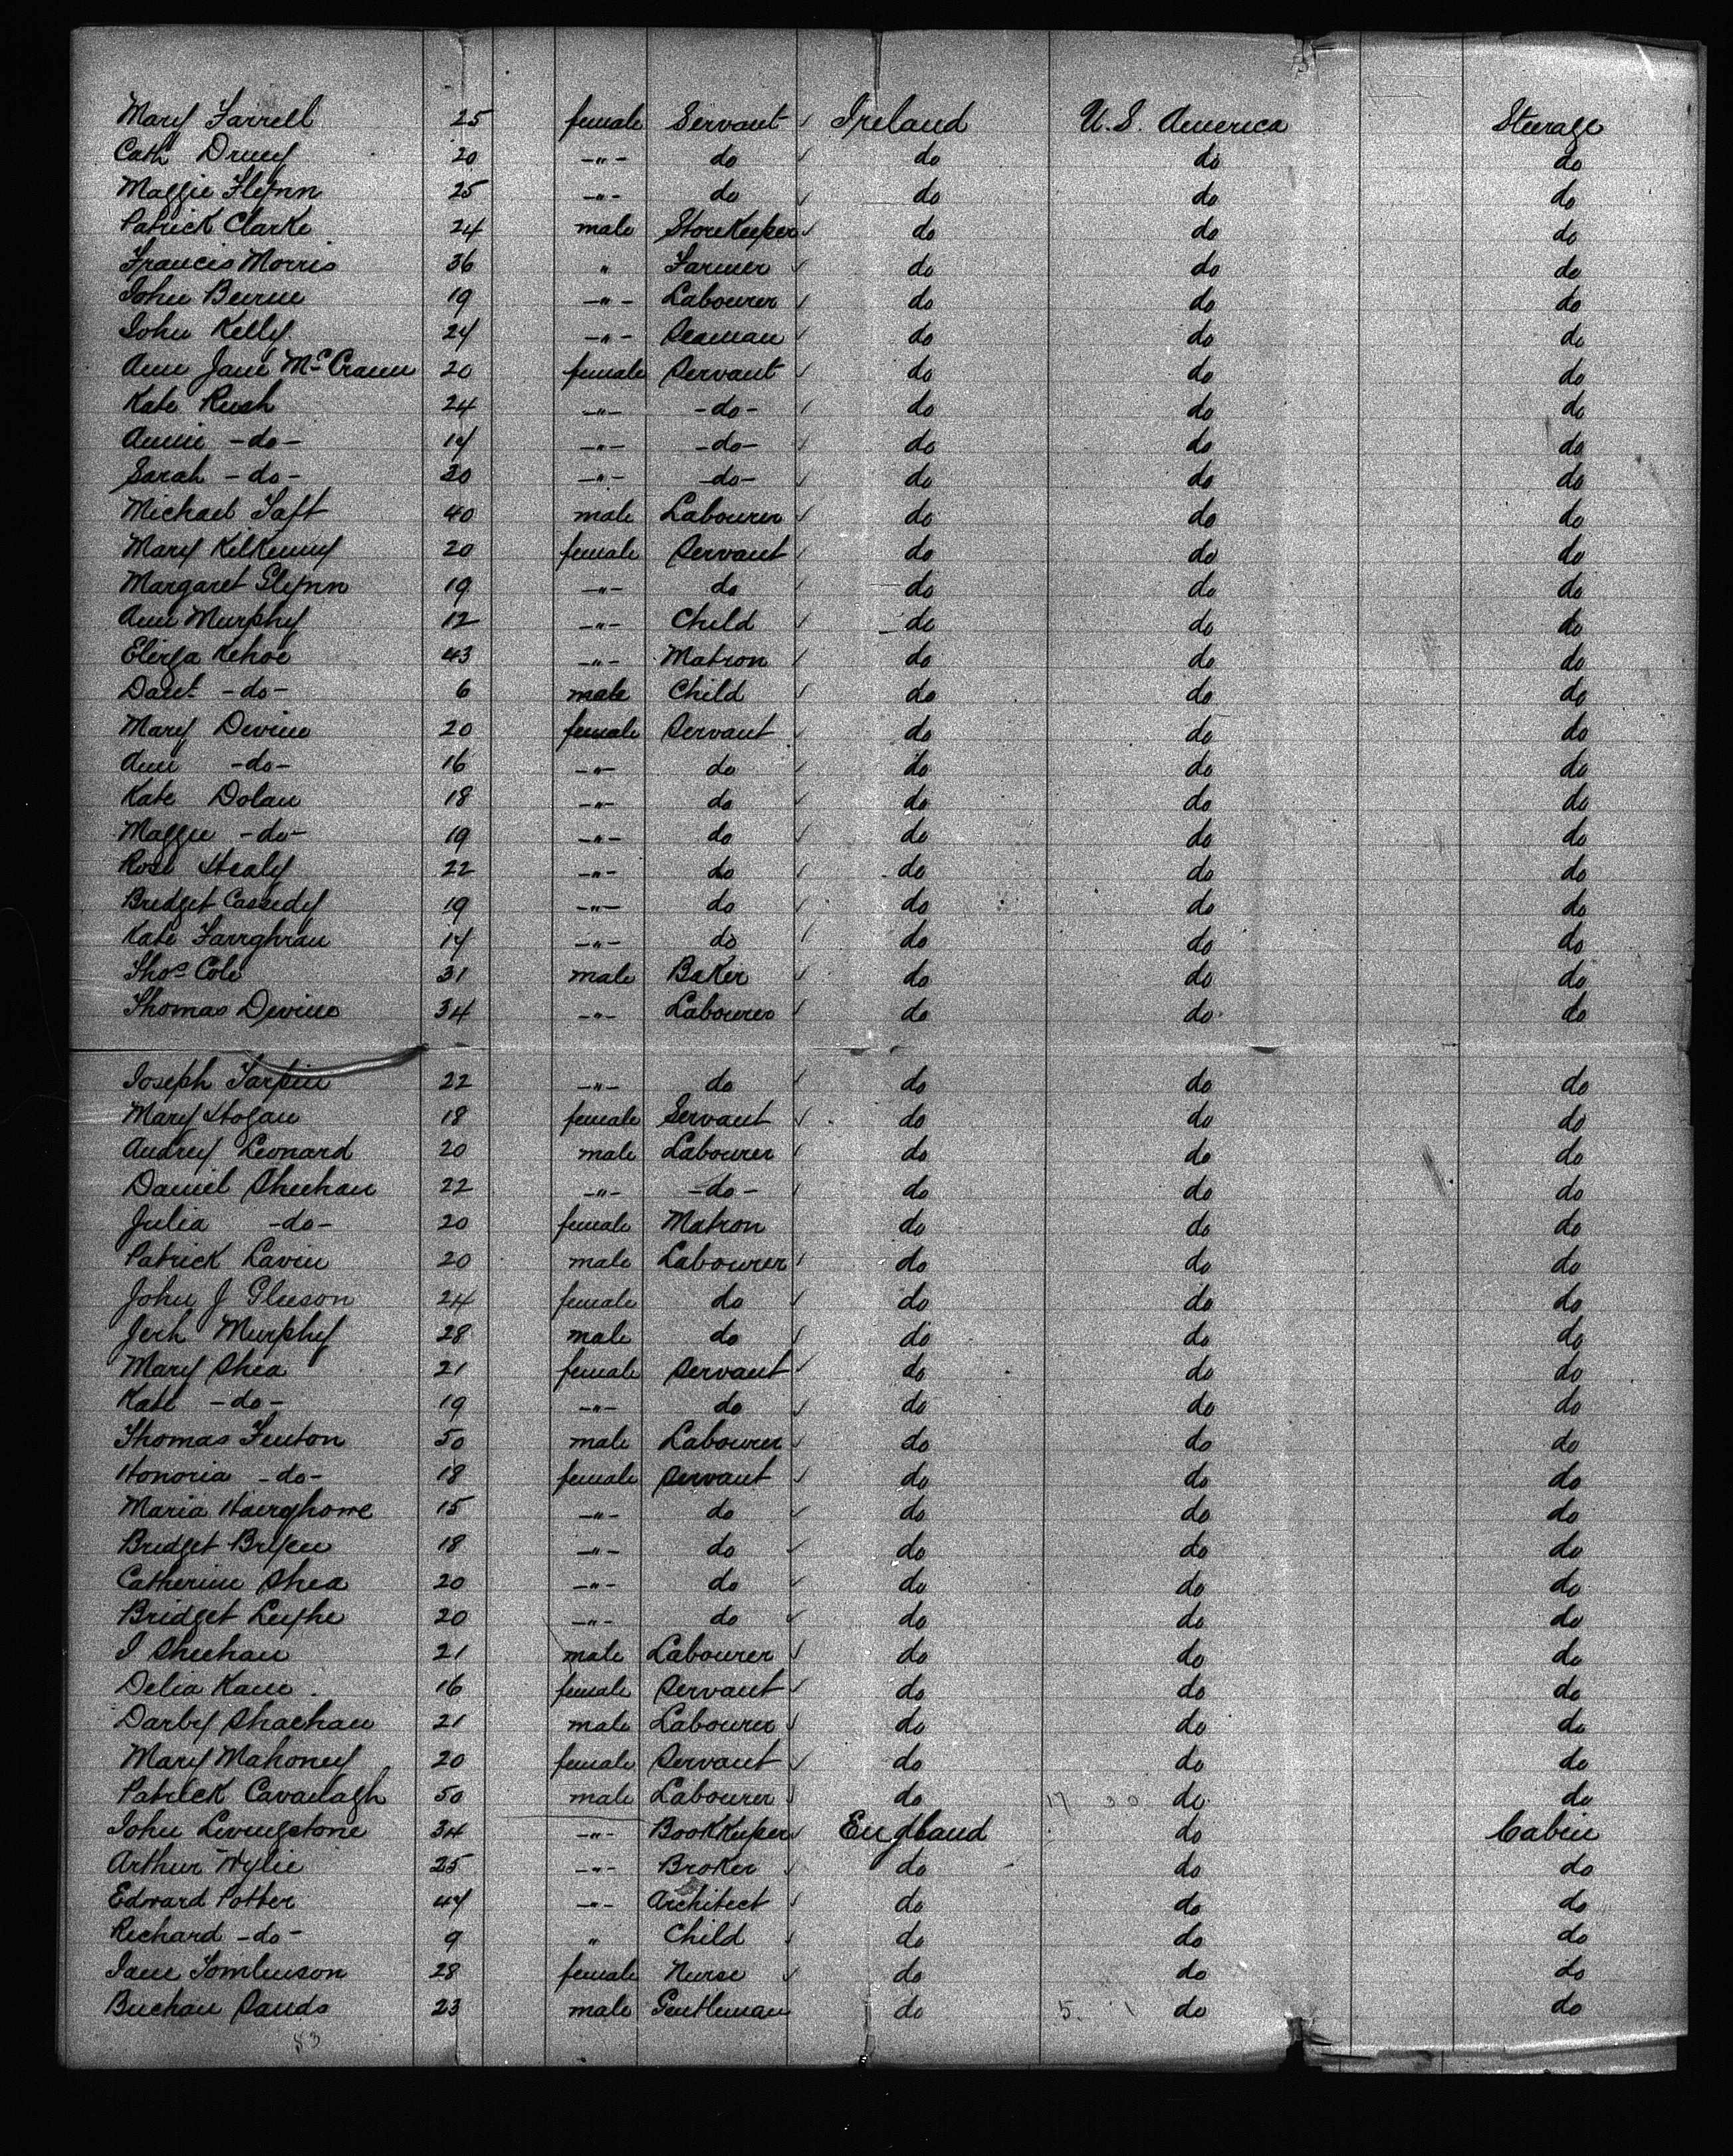 Mary Farrell 25 female Servant ✓ Ireland U.S. America Steerage
Cath Drury 20 -"- do ✓ do do do
Maggie Flynn 25 -"- do ✓ do do do
Patrick Clarke 24 male StoreKeeper ✓ do do do
Francis Morris 36 " Farmer ✓ do do do
John Beirne 19 -"- Labourer ✓ do do do
John Kelly 24 -"- Seaman ✓ do do do
Ann Jane McCrann 20 female Servant ✓ do do do
Kate Rush 24 -"- -do- ✓ do do do
Annie -do- 14 -"- -do- ✓ do do do
Sarah -do- 20 -"- -do- ✓ do do do
Michael Taft 40 male Labourer ✓ do do do
Mary Kilkenny 20 female Servant ✓ do do do
Margaret Glynn 19 -"- do ✓ do do do
Ann Murphy 12 -"- Child ✓ do do do
Eliza Kehoe 43 -"- Matron ✓ do do do
Danl -do- 6 male Child ✓ do do do
Mary Devine 20 female Servant ✓ do do do
Ann -do- 16 -"- do ✓ do do do
Kate Dolan 18 -"- do ✓ do do do
Maggie -do- 19 -"- do ✓ do do do
Rose Healy 22 -"- do ✓ do do do
Bridget Cassedy 19 -"- do ✓ do do do
Kate 14 -"- do ✓ do do do
Thos Cole 31 male Baker ✓ do do do
Thomas Devine 34 -"- Labourer ✓ do do do
Joseph Tarpin 22 -"- do ✓ do do do
Mary Hogan 18 female Servant ✓ do do do
Andrey Leonard 20 male Labourer ✓ do do do
Daniel Sheehan 22 -"- -do- ✓ do do do
Julia -do- 20 female Matron do do do
Patrick Lavin 20 male Labourer ✓ do do do
John J Gleeson 24 female do ✓ do do do
Jerh Murphy 28 male do ✓ do do do
Mary Shea 21 female Servant ✓ do do do
Kate -do- 19 -"- do ✓ do do do
Thomas Fenton 50 male Labourer ✓ do do do
Honoria -do- 18 female Servant ✓ do do do
Maria 15 -"- do ✓ do do do
Bridget Bryen 18 -"- do ✓ do do do
Catherine Shea 20 -"- do ✓ do do do
Bridget 20 -"- do ✓ do do do
I Sheehan 21 male Labourer ✓ do do do
Delia Kane 16 female Servant ✓ do do do
Darby Shaehan 21 male Labourer ✓ do do do
Mary Mahoney 20 female Servant ✓ do do do
Patrick Cavanagh 50 male Labourer ✓ do 17 30 do do
John Livingstone 34 -"- BookKeeper ✓ England do Cabin
Arthur Wylie 25 -"- Broker ✓ do do do
Edward Potter 47 -"- Architect ✓ do do do
Richard -do- 9 " Child ✓ do do do
Jane Tomlinson 28 female Nurse ✓ do do do
Buchan Sands 23 male Gentleman do 5 1 do do
83